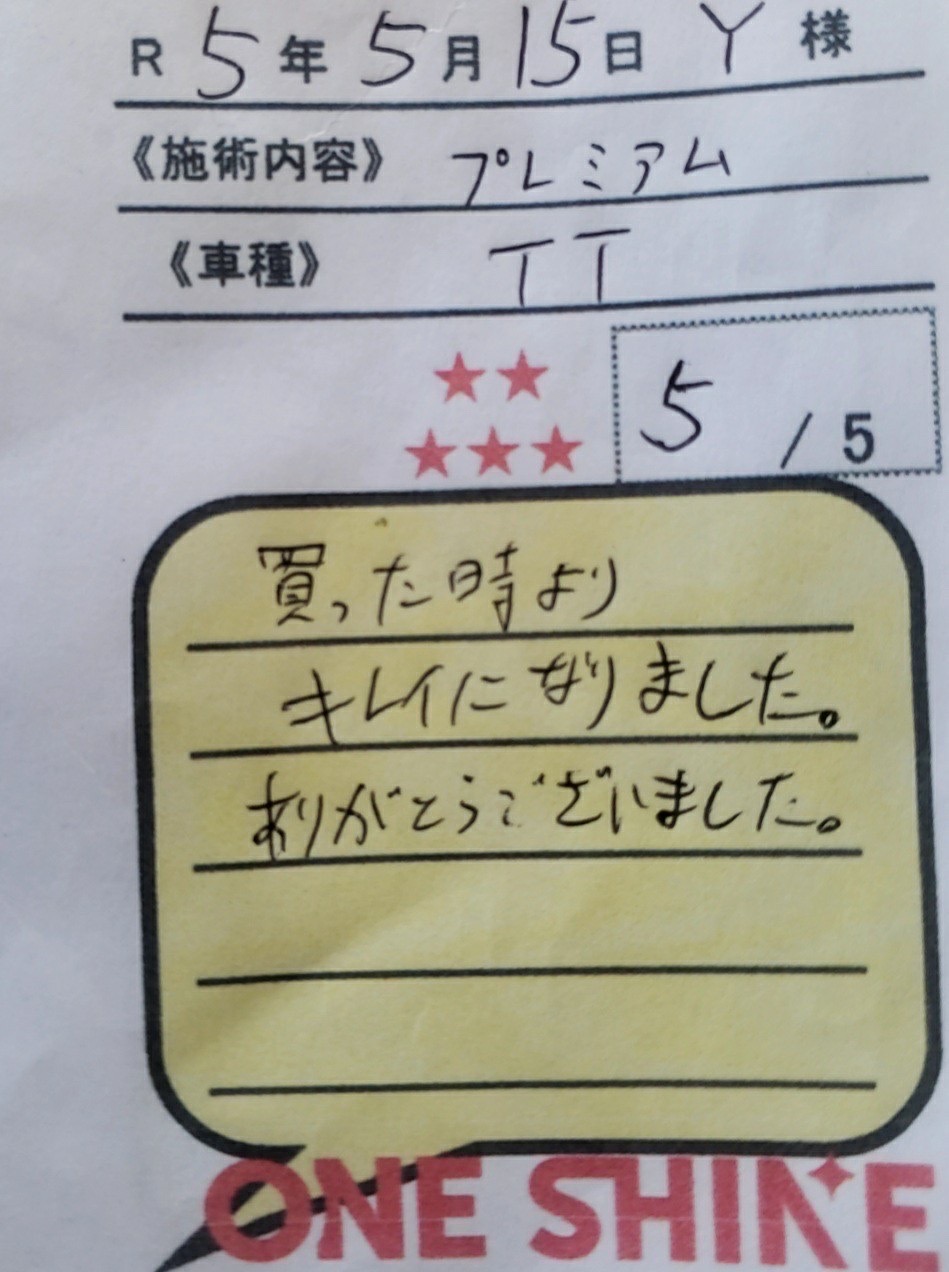 R 5年 5月 15日 Y 様
《施術内容》 プレミアム
《車種》 TT
★★
★★★
5 / 5
買った時より
キレイになりました。
ありがとうございました。
ONE SHINE